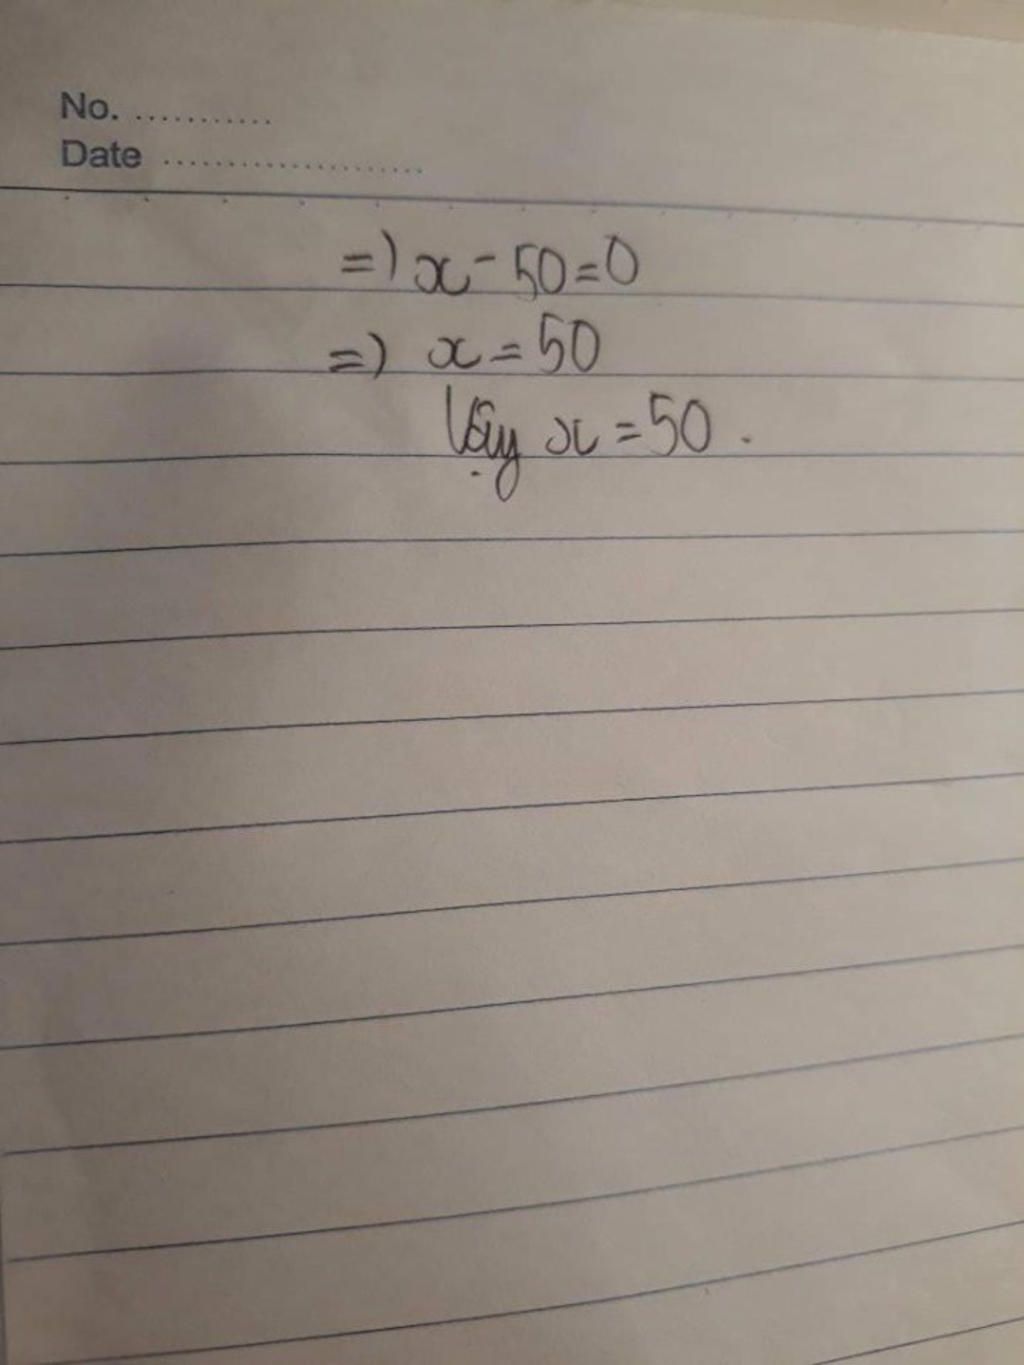 No. ...........
Date ....................
=) x - 50 = 0
=) x = 50
Vậy x = 50.